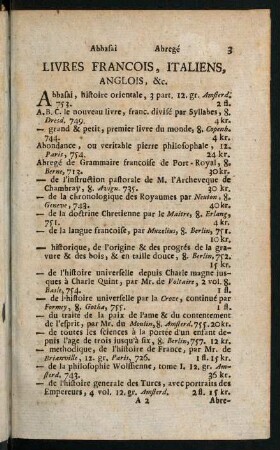 Abbassi Abregé 3
LIVRES FRANCOIS, ITALIENS,
ANGLOIS, &c.
Abbassi, histoire orientale, 3 part. 12. gr. Amsterd.
753. 2 fl.
A. B. C. le nouveau livre, franc. divisé par Syllabes, 8.
Dresd. 749. 4 kr.
— grand & petit, premier livre du monde, 8. Copenh.
744. 4 kr.
Abondance, ou veritable pierre philosophale, 12.
Paris, 754. 24 kr.
Abregé de Grammaire francoise de Port-Royal, 8.
Berne, 713. 30 kr.
— de l'instruction pastorale de M. l'Archeveque de
Chambray, 8. 735. 30 kr.
— de la chronologique des Royaumes par Neuton, 8.
Geneve, 743. 40 kr.
— de la doctrine Chretienne par le Maitre, 8. Erlang,
751. 4 kr.
— de la langue francoise, par Muzelius, 8. Berlin, 751.
10 kr.
— historique, de l'origine & des progrés de la gra-
vure & des bois, & en taille douce, 8. Berlin, 752.
15 kr.
— de l'histoire universelle depuis Charle magne jus-
ques à Charle Quint, par Mr. de Voltaire, 2 vol. 8.
Basle, 754. 1 fl.
— de l'histoire universelle par la Croze, continué par
Formey, 8. Gotha, 755. 1 fl.
— du traité de la paix de l'ame & du contentement
de l'esprit, par Mr. du Moulin, 8. Amsterd. 755. 20 kr.
— de toutes les sciences à la portée d'un enfant de-
puis l'age de trois jusqu'à six, 8. Berlin, 757. 12 kr.
— methodique, de l'histoire de France, par Mr. de
Brianville, 12. gr. Paris, 726. 1 fl. 15 kr.
— de la philosophie Wolfienne, tome I. 12. gr. Am-
sterd. 743. 36 kr.
— de l'histoire generale des Turcs, avec portraits des
Empereurs, 4 vol. 12. gr. Amsterd. 2 fl. 15 kr.
A 2 Abre-